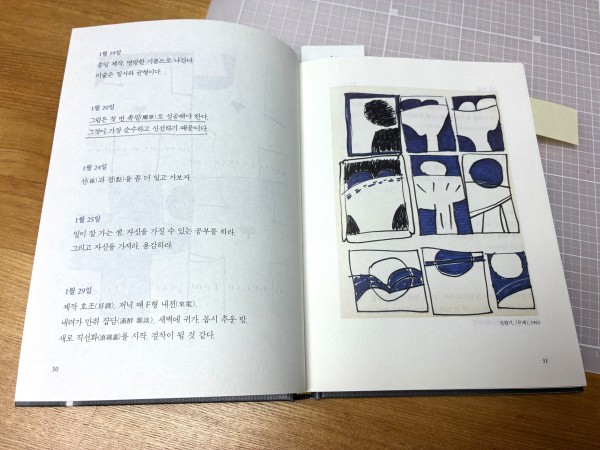 1월 19일
종일 제작. 명랑한 기분으로 나간다.
미술은 질서와 균형이다.
1월 20일
그림은 첫 번 촉필(觸筆)로 성공해야 한다.
그것이 가장 순수하고 신선하기 때문이다.
1월 24일
선(線)과 점(點)을 좀 더 밀고 가보자.
1월 25일
일이 잘 가는 셈. 자신을 가질 수 있는 공부를 하라.
그리고 자신을 가져라. 용감하라.
1월 29일
제작 호조(好調). 저녁 때 F형 내전(來電).
내려가 만취 잡담(滿醉 雜談). 새벽에 귀가. 몹시 추운 밤.
새로 직선화(直線畵)를 시작. 걸작이 될 것 같다.
30
김환기, 〈무제〉, 1963
31